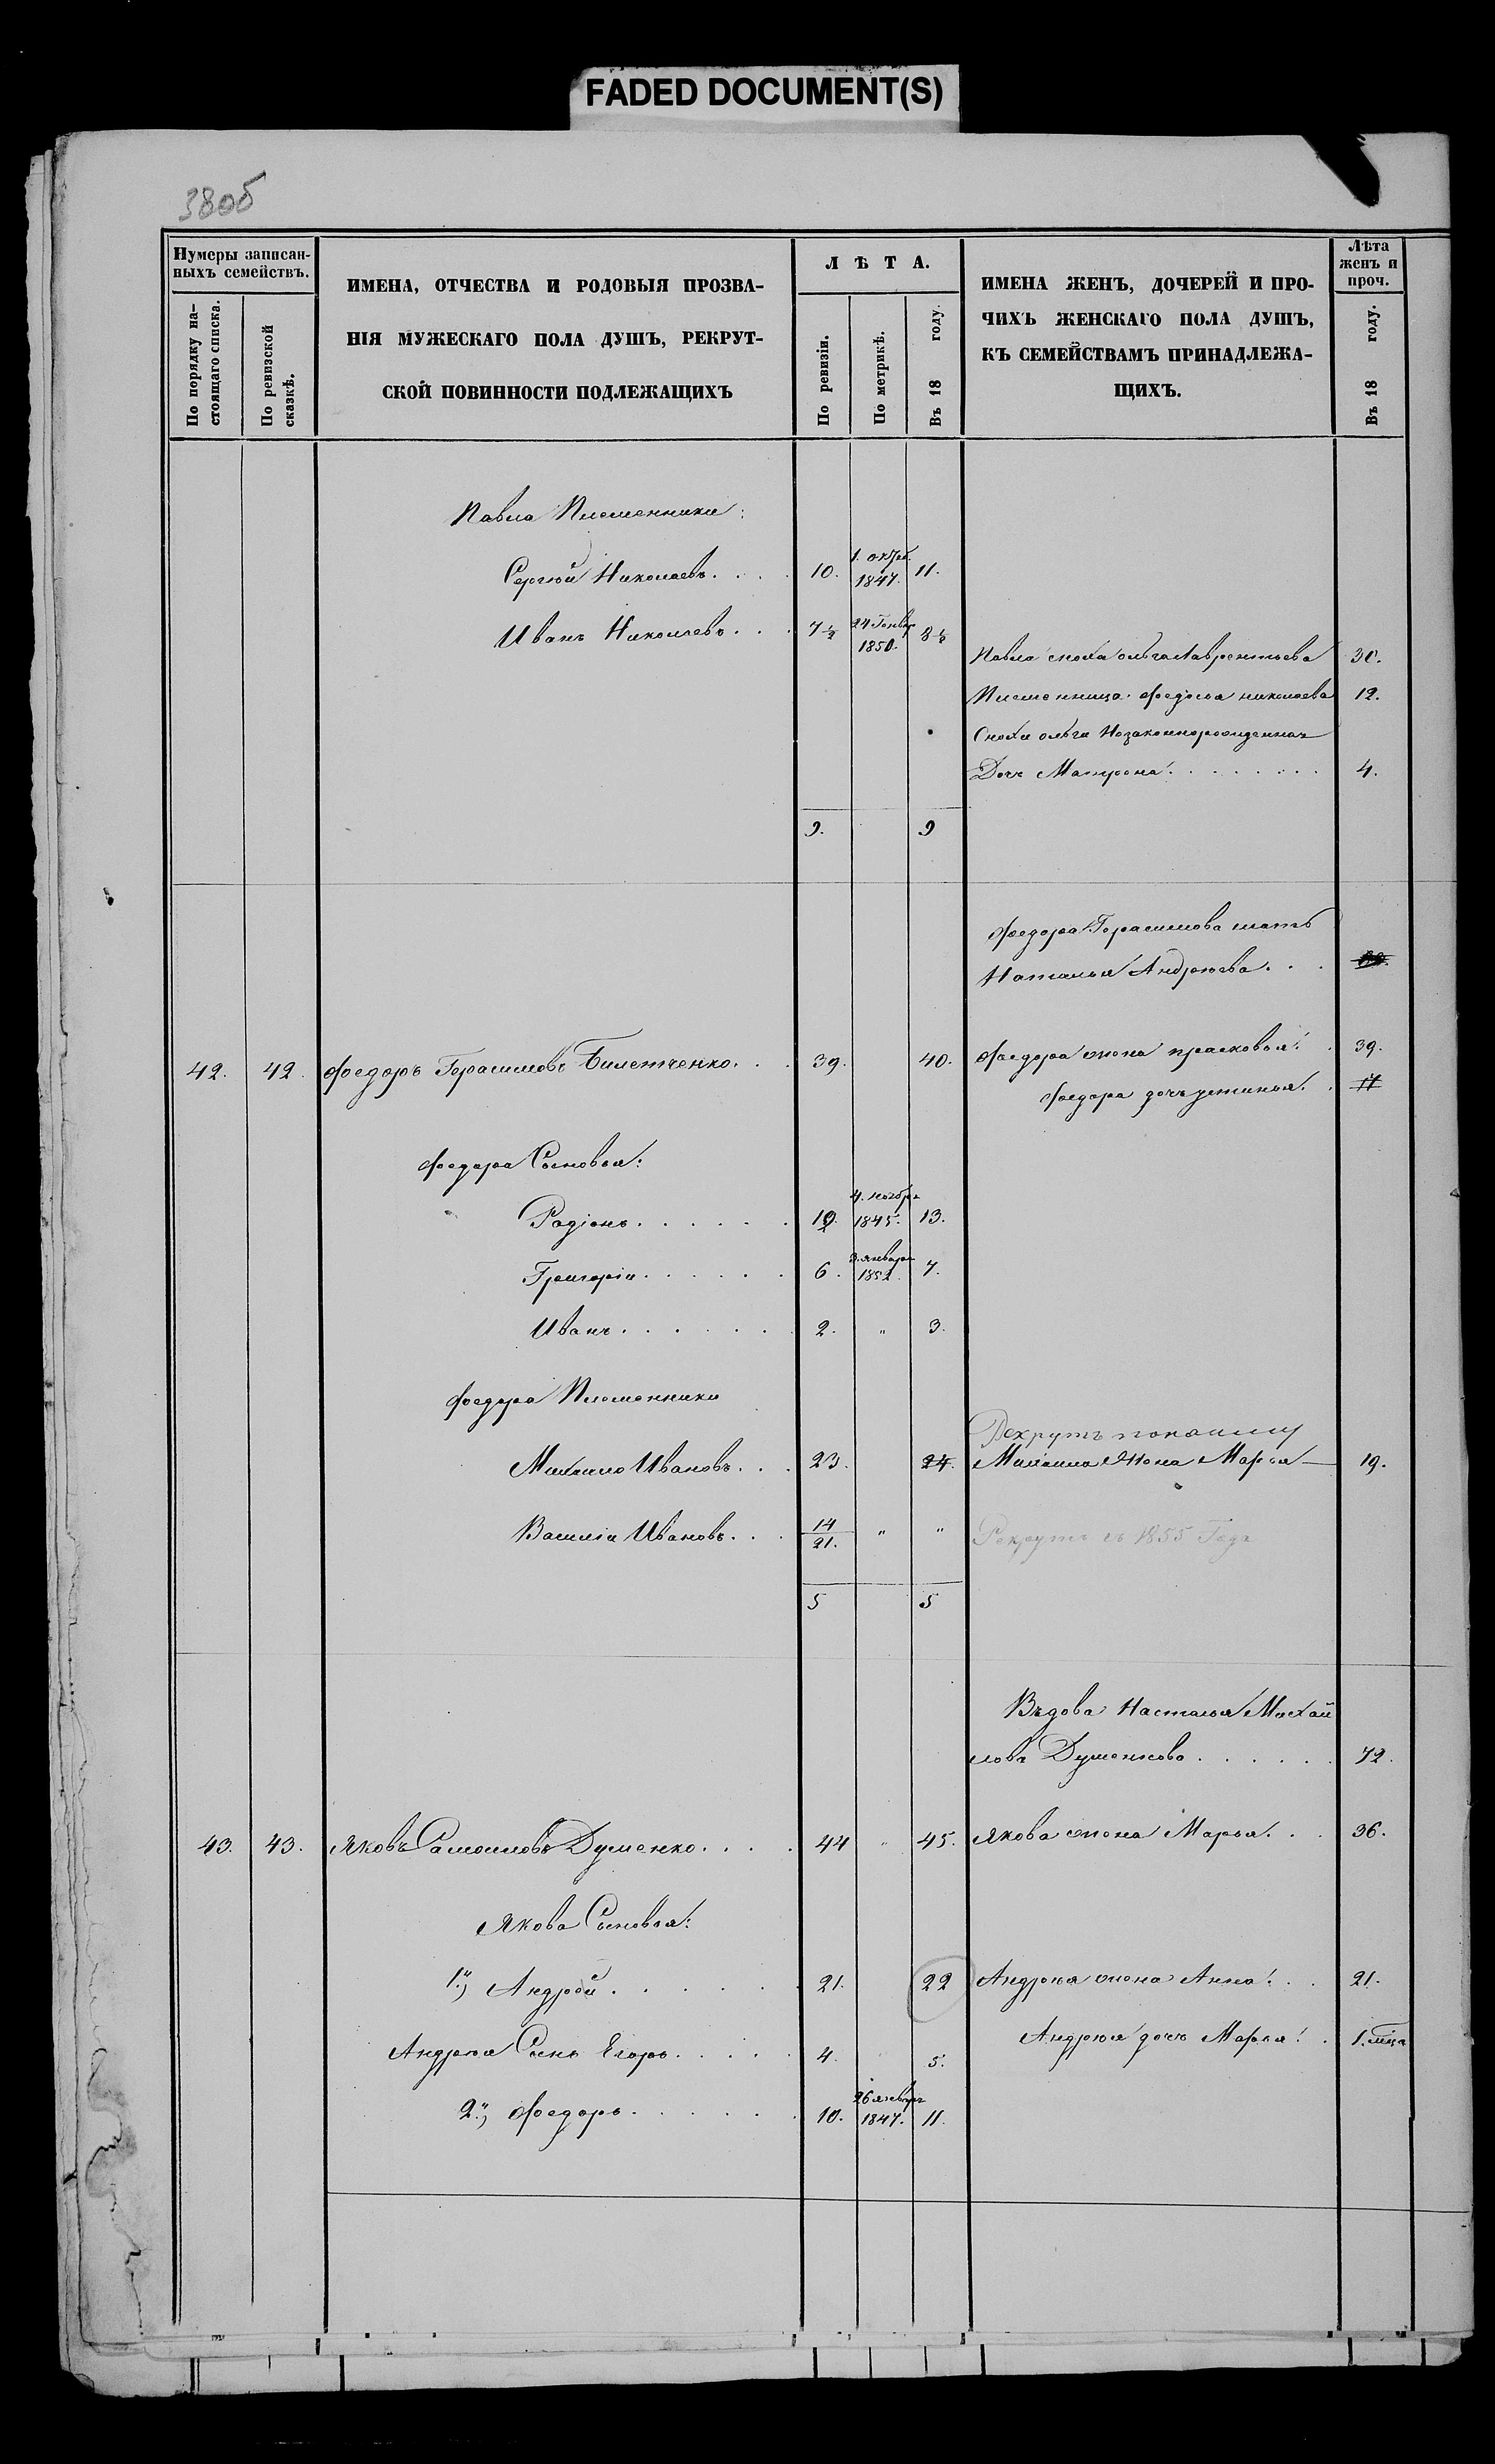 FADED DOCUMENT(S)
38об
Нумеры записан-
ныхъ семействъ.
По порядку на-
стоящаго списка.
По ревизской
сказкѣ.
ИМЕНА, ОТЧЕСТВА И РОДОВЫЯ ПРОЗВА-
НІЯ МУЖЕСКАГО ПОЛА ДУШЪ, РЕКРУТ-
СКОЙ ПОВИННОСТИ ПОДЛЕЖАЩИХЪ
ЛѢТА.
По ревизіи.
По метрикѣ.
Въ 18 году.
ИМЕНА ЖЕНЪ, ДОЧЕРЕЙ И ПРО-
ЧИХЪ ЖЕНСКАГО ПОЛА ДУШЪ,
КЪ СЕМЕЙСТВАМЪ ПРИНАДЛЕЖА-
ЩИХЪ.
Лѣта
женъ и
проч.
Въ 18 году.
Павла Племенники:
Сергѣй Николаевъ. . . . 10. 1. октяб. 1847. 11.
Иванъ Николаевъ. . . 7½ 24 Генвар 1850. 8½
Павла сноха ольга Лаврентьева 30.
Племенница федосья николаева 12.
Снохи ольги Незаконнорожденная
Дочь Матрона. . . . . . . . 4.
9. 9
федора Герасимова мать
Наталья Андреева. . .
42. 42 федоръ Герасимовъ Билетченко. . . 39. 40. федора жена прасковья. . 39.
федора дочь устинья. . 17
федора Сыновья:
Родіонъ. . . . . . 12. 4. ноября 1845. 13.
Григорій. . . . . . 6. 3. января 1852. 7.
Иванъ. . . . . . . 2. " 3.
федора Племенники
Рекрутъ
Михаило Ивановъ. . . 23. 24. Михаила Жена Марья 19.
Василій Ивановъ. . . 14/21. " " Рекрутъ съ 1855 Года
5 5
Вдова Насталья Михай
лова Думенкова . . . . . . 72.
43. 43. Яковъ Самоиловъ Думенко. . . . 44 " 45. Якова жена Марья. . . 36.
Якова Сыновья:
1.") Андрѣй. . . . . . 21. 22 Андрѣя жена Анна. . . 21.
Андрѣя дочь Марья. . 1. мѣца
Андрѣя Сынъ Егоръ. . . . . 4. 5.
2.") федоръ. . . . . . 10. 26 январь 1847. 11.